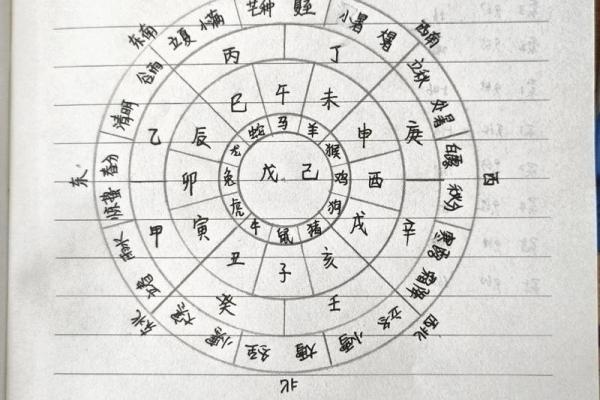 东南 西南 西 西北 北 东北 东
立夏 小满 芒种 夏至 小暑 大暑 立秋 处暑 白露 秋分 寒露 霜降 立冬 小雪 大雪 冬至 小寒 大寒 立春 雨水 惊蛰 春分 清明 谷雨
丙 丁 庚 辛 壬 癸 甲 乙
巳 午 未 申 酉 戌 亥 子 丑 寅 卯 辰
蛇 马 羊 猴 鸡 狗 猪 鼠 牛 虎 兔 龙
戊 己